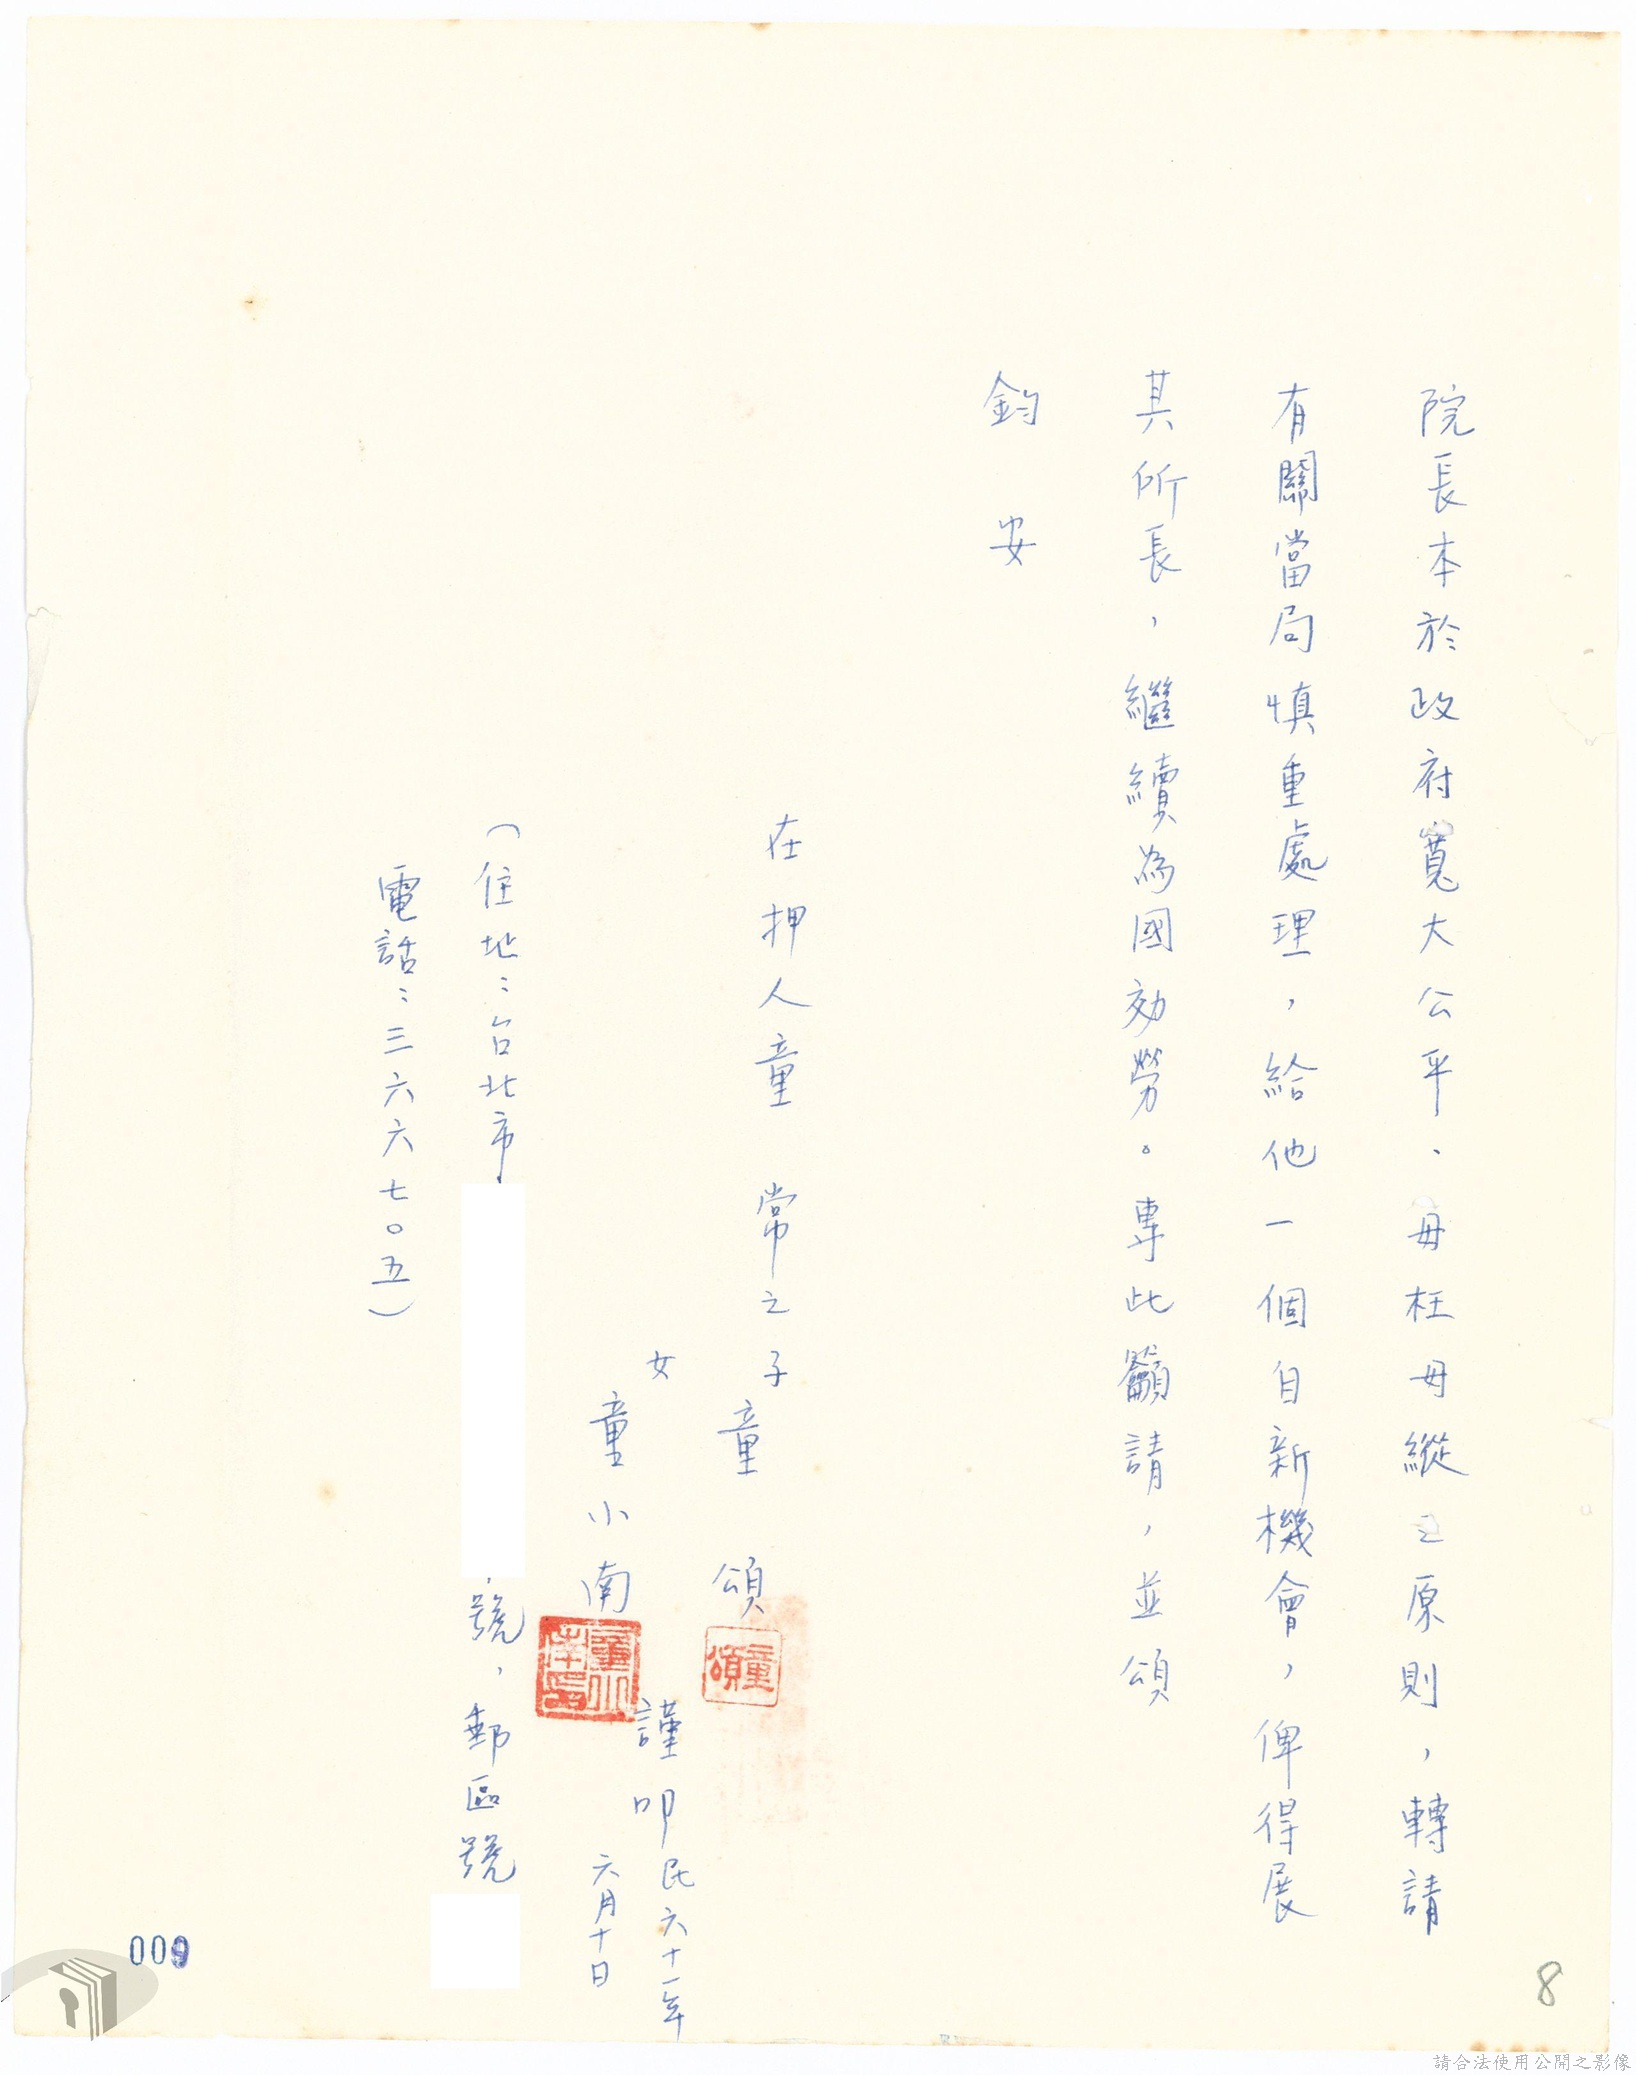 院長本於政府寬大公平、毋枉毋縱之原則，轉請
有關當局慎重處理，給他一個自新機會，俾得展
其所長，繼續為國効勞。專此籲請，並頌
鈞安
在押人童　常之子童　頌
女童小南
童頌
童小南印
謹叩
民六十一年
六月十日
（住地：台北市
號，郵區號
電話：三六六七〇五）
009
8
請合法使用公開之影像